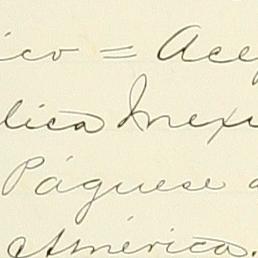 ico = Acep
lica Mexic
Páguese a
América.